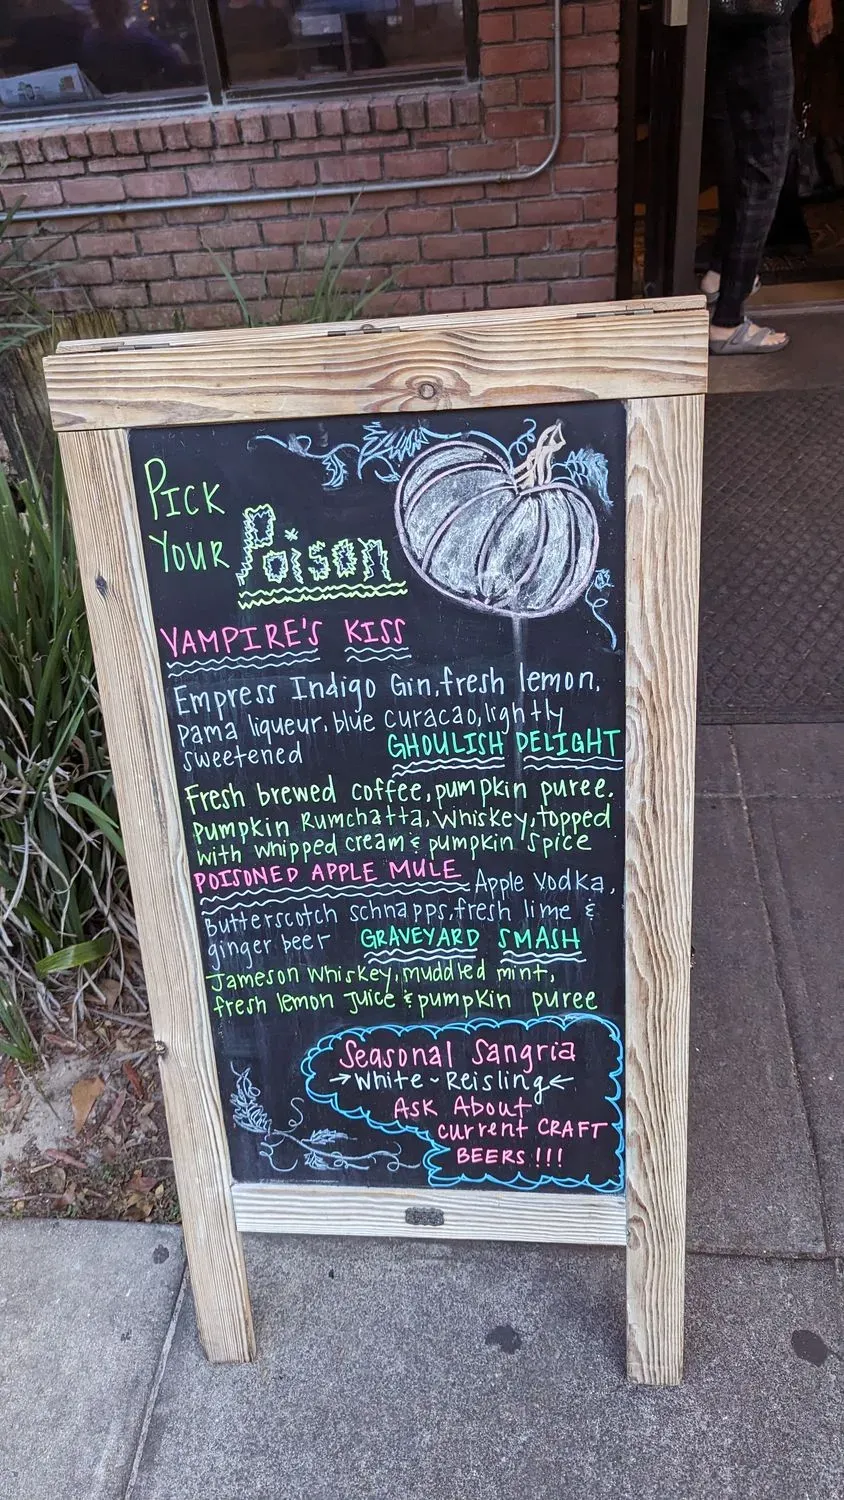 PICK
YOUR Poison
VAMPIRE'S KISS
Empress Indigo Gin, fresh lemon,
pama liqueur, blue curacao, lightly
sweetened GHOULISH DELIGHT
Fresh brewed coffee, pumpkin puree.
pumpkin Rumchatta, Whiskey, topped
with whipped cream & pumpkin spice
POISONED APPLE MULE Apple Vodka,
butterscotch schnapps, fresh lime &
ginger beer GRAVEYARD SMASH
Jameson Whiskey, muddled mint,
fresh lemon juice & pumpkin puree
Seasonal Sangria
→White ~ Reisling←
ASK About
current CRAFT
BEERS!!!